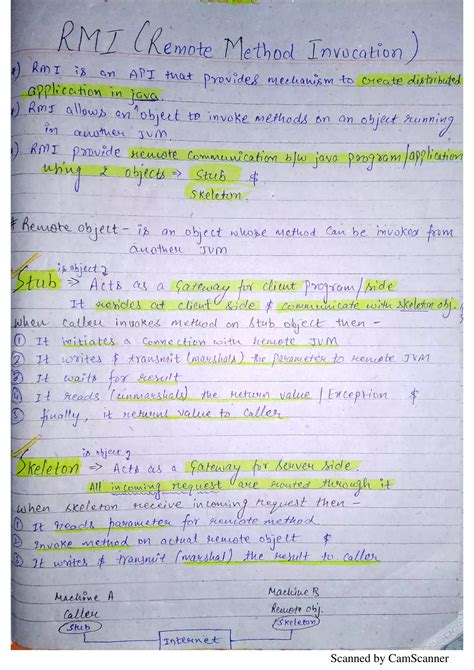 RMI (Remote Method Invocation)
RMI is an API that provides mechanism to create distributed
application in java.
RMI allows an object to invoke methods on an object running
in another JVM
RMI provide remote communication b/w java program/application
using 2 objects => Stub &
Skeleton.
# Remote object - is an object whose method can be invoked from
another JVM
is object
Stub => Acts as a Gateway for client program/side
It resides at client side & communicate with skeleton obj.
when caller invokes method on stub object then -
① It initiates a connection with remote JVM
② It writes & transmit (marshals) the parameter to remote JVM
③ It waits for result
④ It reads (unmarshals) the return value / Exception &
⑤ finally, it returns value to caller
is object
Skeleton => Acts as a Gateway for server side.
All incoming request are routed through it
when skeleton receive incoming request then -
① It reads parameter for remote method
② Invoke method on actual remote object &
③ It writes & transmit (marshal) the result to caller
Machine A Machine B
Caller Remote obj.
Stub Skeleton
Internet
Scanned by CamScanner